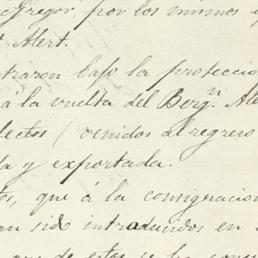 cGregor, por los mismos e
Alert.
traron bajo la proteccio
á la vuelta del Bergn. Ale
fectos (venidos al regreso
da y exportada.
tos, que á la consignacion
an sido introducidos en
que de estos se ha